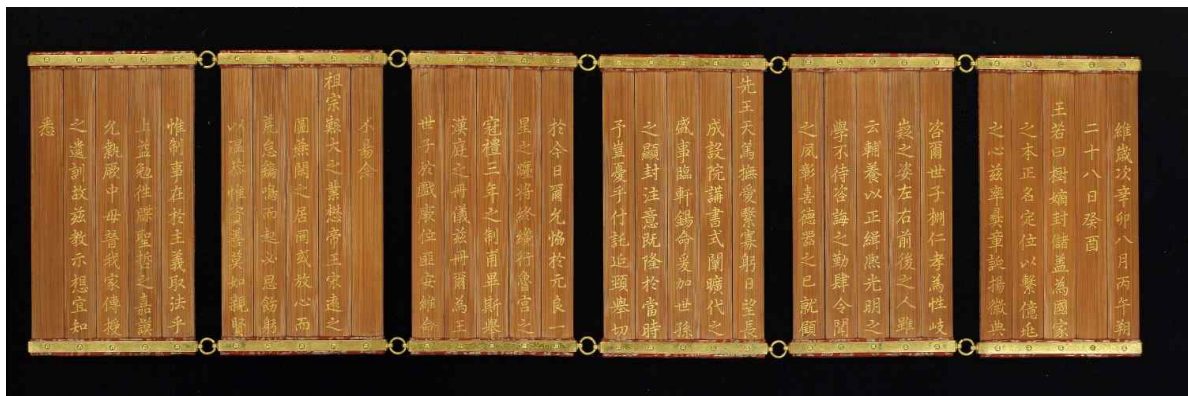 維歲次辛卯八月丙午朔
二十八日癸酉
王若曰樹嫡封儲蓋為國家
之本正名定位以繫億兆
之心茲率彝章誕揚徽典
咨爾世子棩仁孝為性岐
嶷之姿左右前後之人雖
云輔養以正緝熙光明之
學不待咨誨之勤肆令聞
之夙彰喜德器之已就顧
先王天篤撫愛繄寡躬日望長
成設院講書式闡曠代之
盛事臨軒錫命爰加世孫
之顯封注意既隆於當時
予豈憂乎付託延頸舉切
於今日爾允恊於元良一
星之曜將終纔行魯宮之
冠禮三年之制甫畢斯舉
漢庭之冊儀茲冊爾為王
世子於戲厥位匪安維命
不易念
祖宗艱大之業懋帝王宏遠之
圖燕閒之居罔或放心而
荒怠鷄鳴而起必思飭躬
以溫恭惟資善莫如親賢
惟制事在於主義取法乎
上益勉往牒聖哲之嘉謨
允執厥中毋替我家傳授
之遺訓故茲教示想宜知
悉